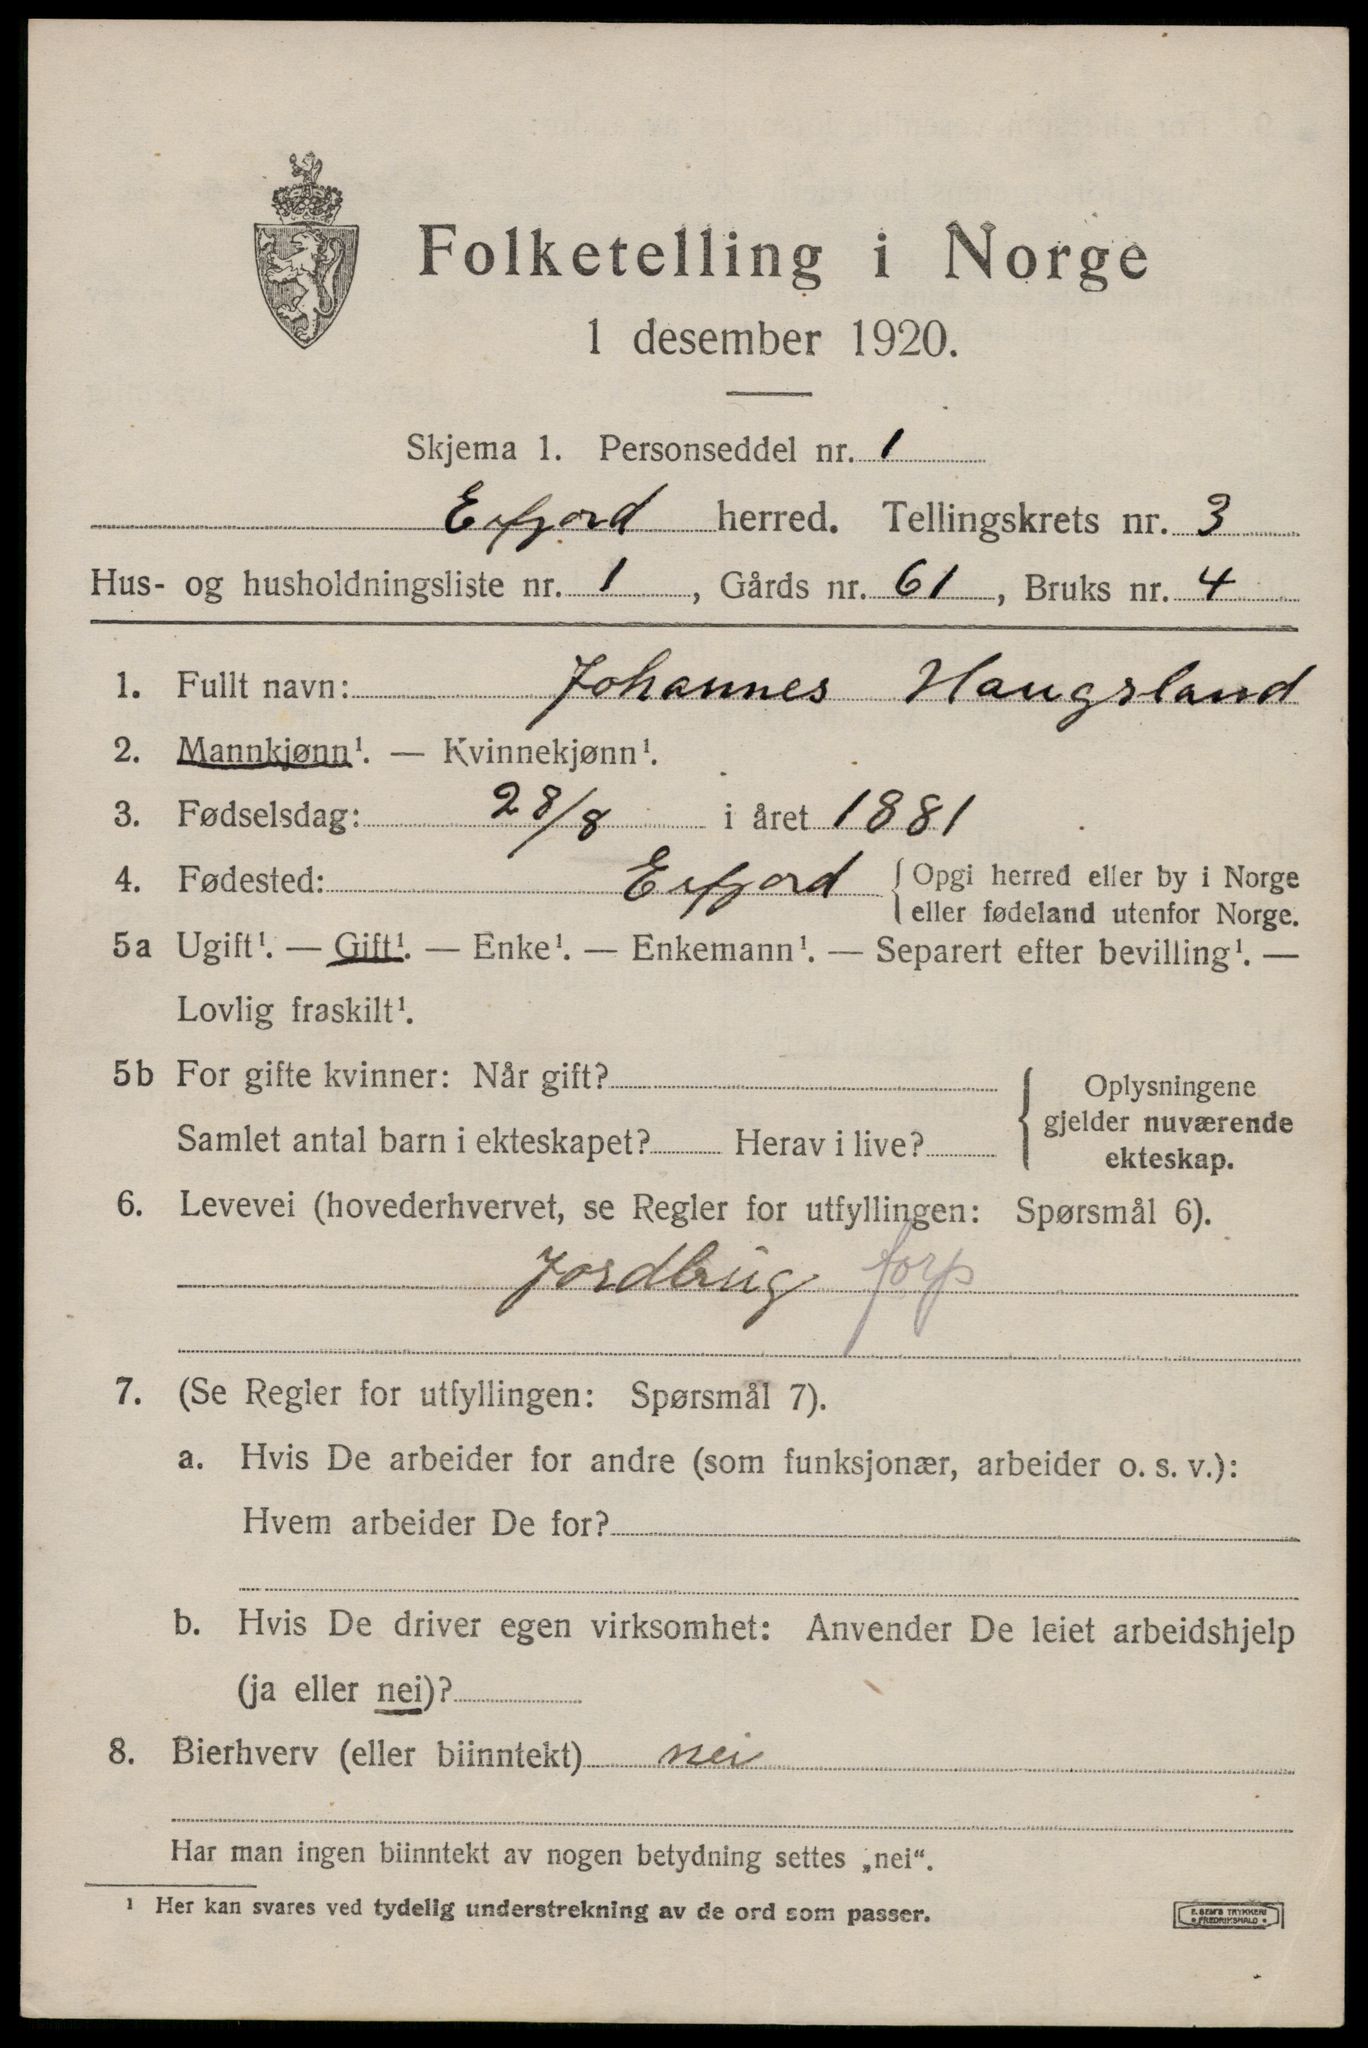 Folketelling i Norge
1 desember 1920.
Skjema 1. Personseddel nr. 1
Erfjord herred. Tellingskrets nr. 3
Hus- og husholdningsliste nr. 1, Gårds nr. 61, Bruks nr. 4
1. Fullt navn: Johannes Haugsland
2. Mannkjønn¹. — Kvinnekjønn¹.
3. Fødselsdag: 28/8 i året 1881
4. Fødested: Erfjord { Opgi herred eller by i Norge
eller fødeland utenfor Norge.
5a Ugift¹. — Gift¹. — Enke¹. — Enkemann¹. — Separert efter bevilling¹. —
Lovlig fraskilt¹.
5b For gifte kvinner: Når gift?
Samlet antal barn i ekteskapet? Herav i live?
{ Oplysningene
gjelder nuværende
ekteskap.
6. Levevei (hovederhvervet, se Regler for utfyllingen: Spørsmål 6).
Jordbrug forp
7. (Se Regler for utfyllingen: Spørsmål 7).
a. Hvis De arbeider for andre (som funksjonær, arbeider o. s. v.):
Hvem arbeider De for?
b. Hvis De driver egen virksomhet: Anvender De leiet arbeidshjelp
(ja eller nei)?
8. Bierhverv (eller biinntekt) nei
Har man ingen biinntekt av nogen betydning settes „nei“.
¹ Her kan svares ved tydelig understrekning av de ord som passer.
E. SEM'S TRYKKERI
FREDRIKSHALD